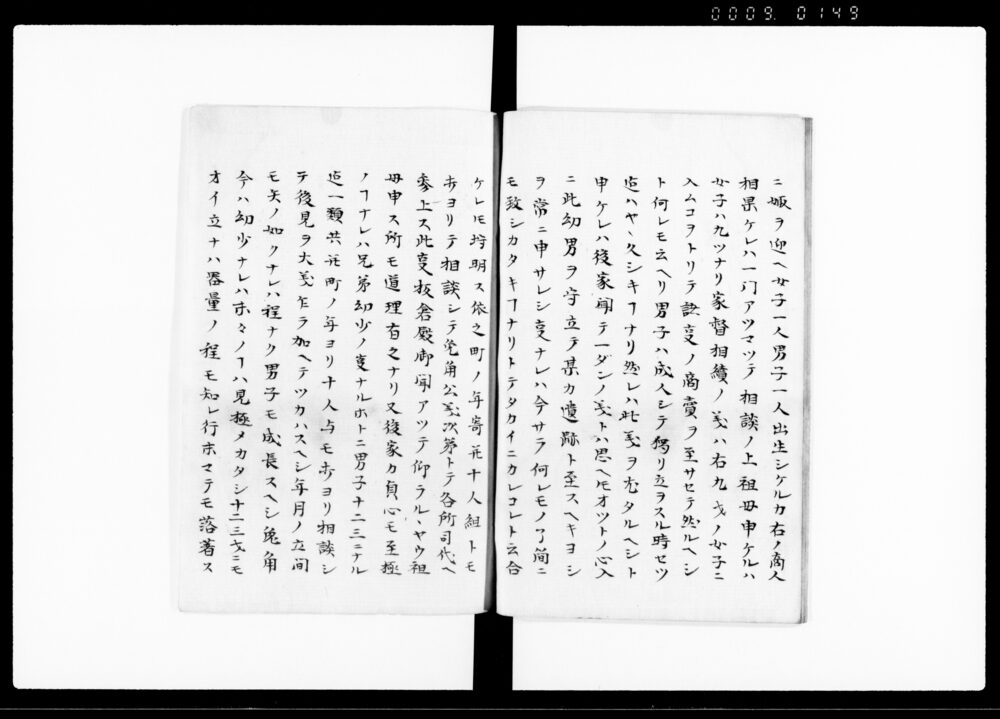 0009. 0149
ニ娠ヲ迎ヘ女子一人男子一人出生シケルカ右ノ商人
相果ケレハ一門アツマツテ相談ノ上祖母申ケルハ
女子ハ九ツナリ家督相續ノ義ハ右九才ノ女子ニ
入ムコヲトリテ諸事ノ商賣ヲ至サセテ然ルヘシ
ト何レモ云ヘリ男子ハ成人シテ獨リ立ヲスル時セツ
迠ハヤヽ久シキヿナリ然レハ此義ヲ尤タルヘシト
申ケレハ後家聞テ一ダンノ義トハ思ヘ𪜈オツトノ心入
ニ此幼男ヲ守立テ某カ遺跡ト至スヘキヨシ
ヲ常ニ申サレシ事ナレハ今サラ何レモノ了簡ニ
モ致シカタキヿナリトテタカイニカレコレト云合
ケレ𪜈埒明ス依之町ノ年寄并十人組トモ
ホヨリテ相談シテ兎角公義次第トテ各所司代ヘ
參上ス此事板倉殿御聞アツテ仰ラルヽヤウ祖
母申ス所モ道理有之ナリ又後家カ貞心モ至極
ノヿナレハ兄弟幼少ノ事ナルホトニ男子十二三ニナル
迠一類共并町ノ年ヨリ十人与モホヨリ相談シ
テ後見ヲ大義乍ラ加ヘテツカハスヘシ年月ノ立間
モ矢ノ如クナレハ程ナク男子モ成長スヘシ兎角
今ハ幼少ナレハホ々ノヿハ見極メカタシ十二三才ニモ
オイ立ナハ器量ノ程モ知レ行ホマテモ落著ス